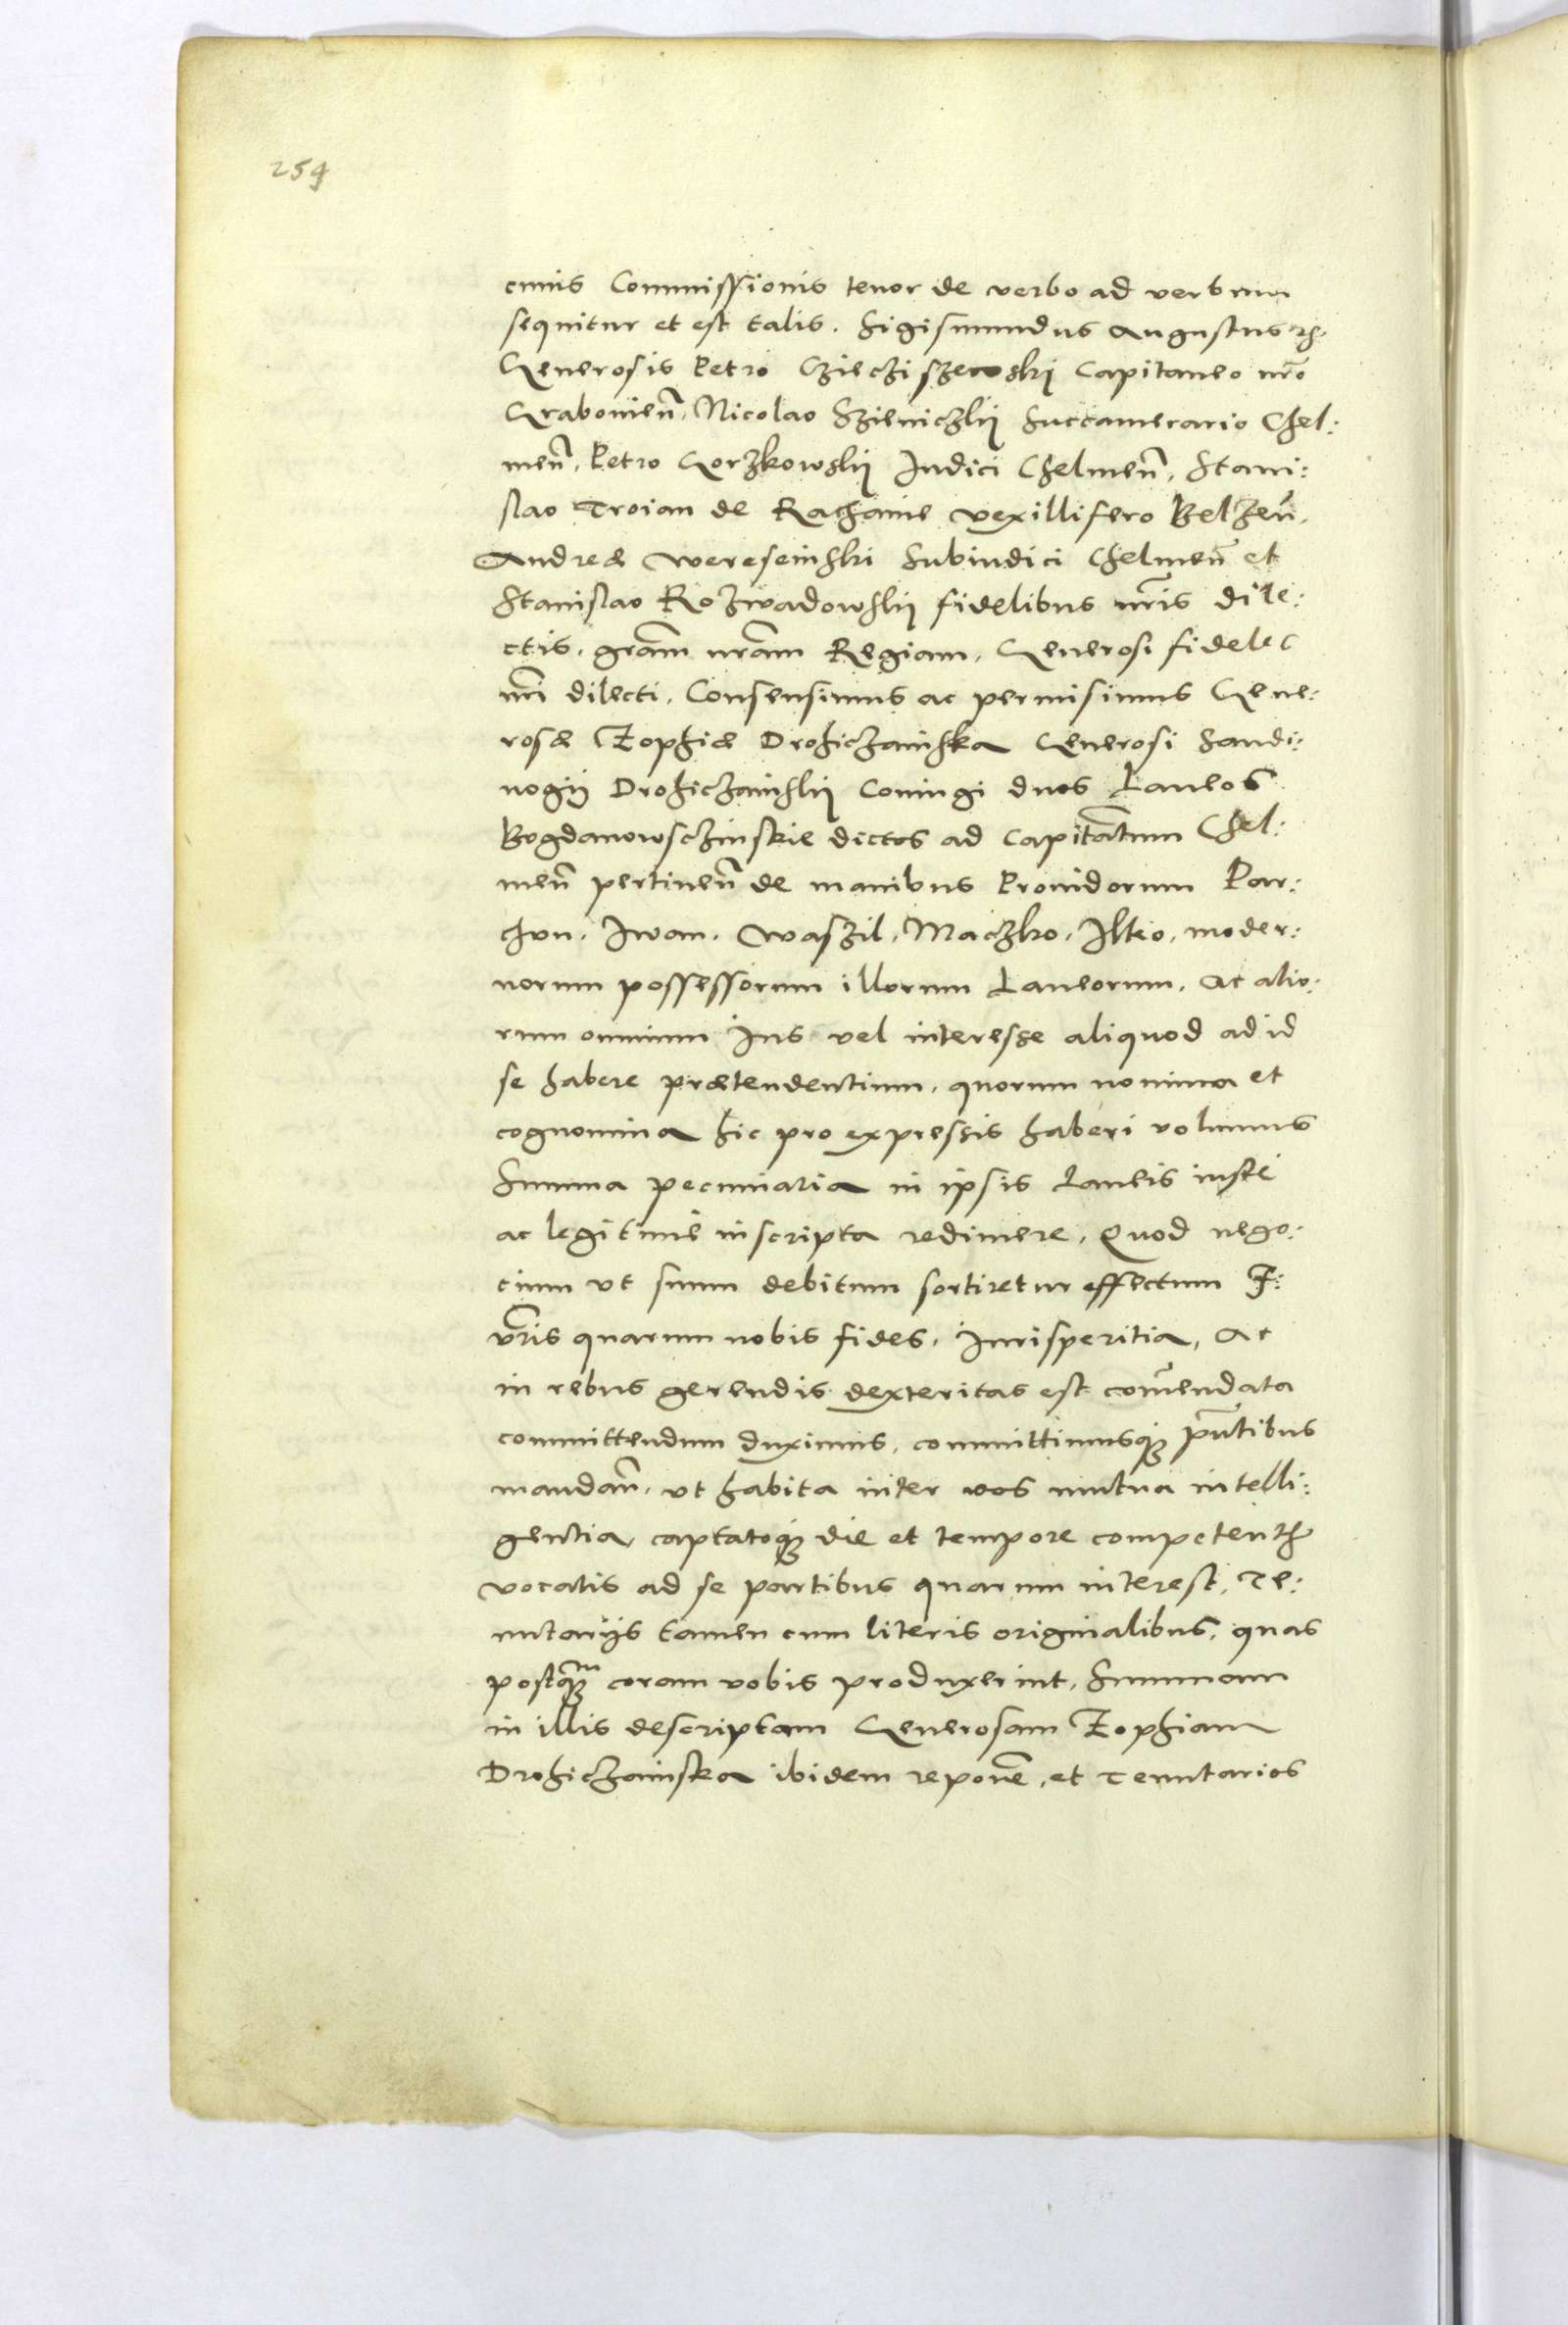 259
cuius Commissionis tenor de verbo ad verbum
sequitur et est talis. Sigismundus Augustus etc.
Generosis Petro Cziecziszewski Capitaneo nro
Grabovien̄, Nicolao Szieniczkij Succamerario Chel:
men̄, Petro Gorzkowskij Iudici Chelmen̄, Stani:
slao Troian de Rachanie vexillifero Belzen̄,
Andreæ Wereseinski Subiudici Chelmen̄ et
Stanislao Rozwadowskij fidelibus nris dile:
ctis, gram nram Regiam, Generosi fideles
nri dilecti. Consensimus ac permisimus Gene:
rosæ Zophiæ Drohiczainska Generosi Sandi:
nogij Drohiczainskij Coniugi duos Laneos
Bogdanowsczinskie dictos ad Capitatum Chel:
men̄ pertinen̄ de manibus Providorum Par:
chvn. Iwan. Waszil, Maczko, Ilko, moder:
norum possessorum illorum Laneorum, ac alio:
rum omnium Ius vel interesse aliquod ad id
se habere prætendentium, quorum nomina et
cognomina hic pro expressis haberi volumus
Summa pecuniaria in ipsis Laneis iuste
ac legitime inscripta redimere, Quod nego:
cium vt suum debitum sortiretur effectum F:
vris quarum nobis fides, Iurisperitia, ac
in rebus gerendis dexteritas est com̄endata
committendum duximus, committimusq; pn̄tibus
mandan̄, vt habita inter vos mutua intelli:
gentia, captatoq; die et tempore competenti
vocatis ad se partibus quarum interest, Te:
nutarijs tamen cum literis originalibus, quas
postq̃m coram vobis produxerint, Summam
in illis descriptam Generosam Zophiam
Drohiczainska ibidem reponē, et Tenutarios